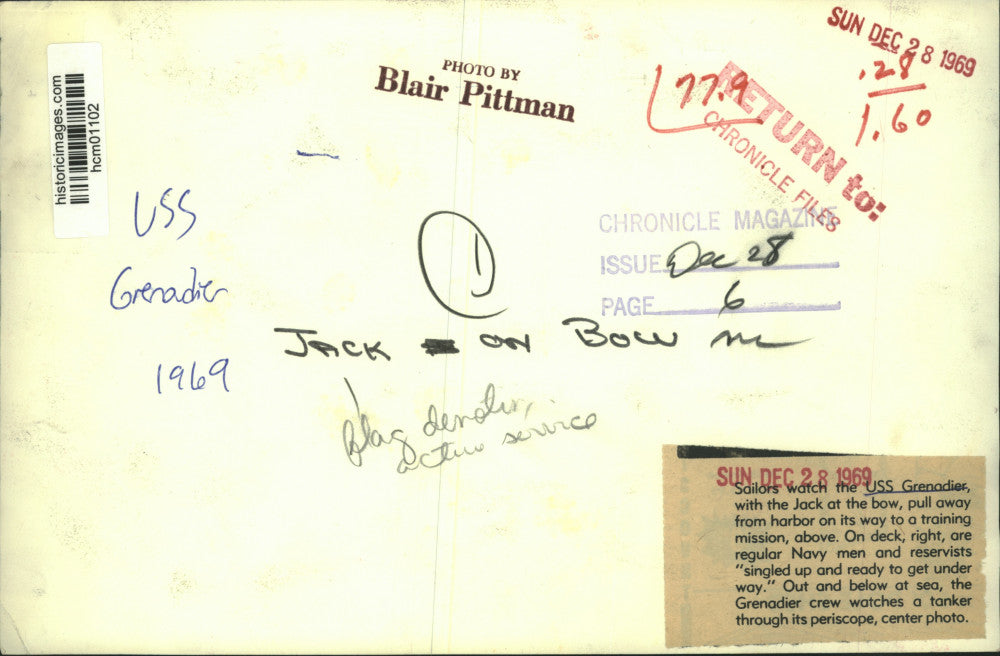 SUN DEC 28 1969
.28
1.60
77.9
RETURN to:
CHRONICLE FILES
PHOTO BY
Blair Pittman
historicimages.com
hcm01102
USS
Grenadier
1969
1
CHRONICLE MAGAZINE
ISSUE Dec 28
PAGE 6
JACK ON BOW
flag denoting
active service
SUN DEC 28 1969
Sailors watch the USS Grenadier,
with the Jack at the bow, pull away
from harbor on its way to a training
mission, above. On deck, right, are
regular Navy men and reservists
"singled up and ready to get under
way." Out and below at sea, the
Grenadier crew watches a tanker
through its periscope, center photo.